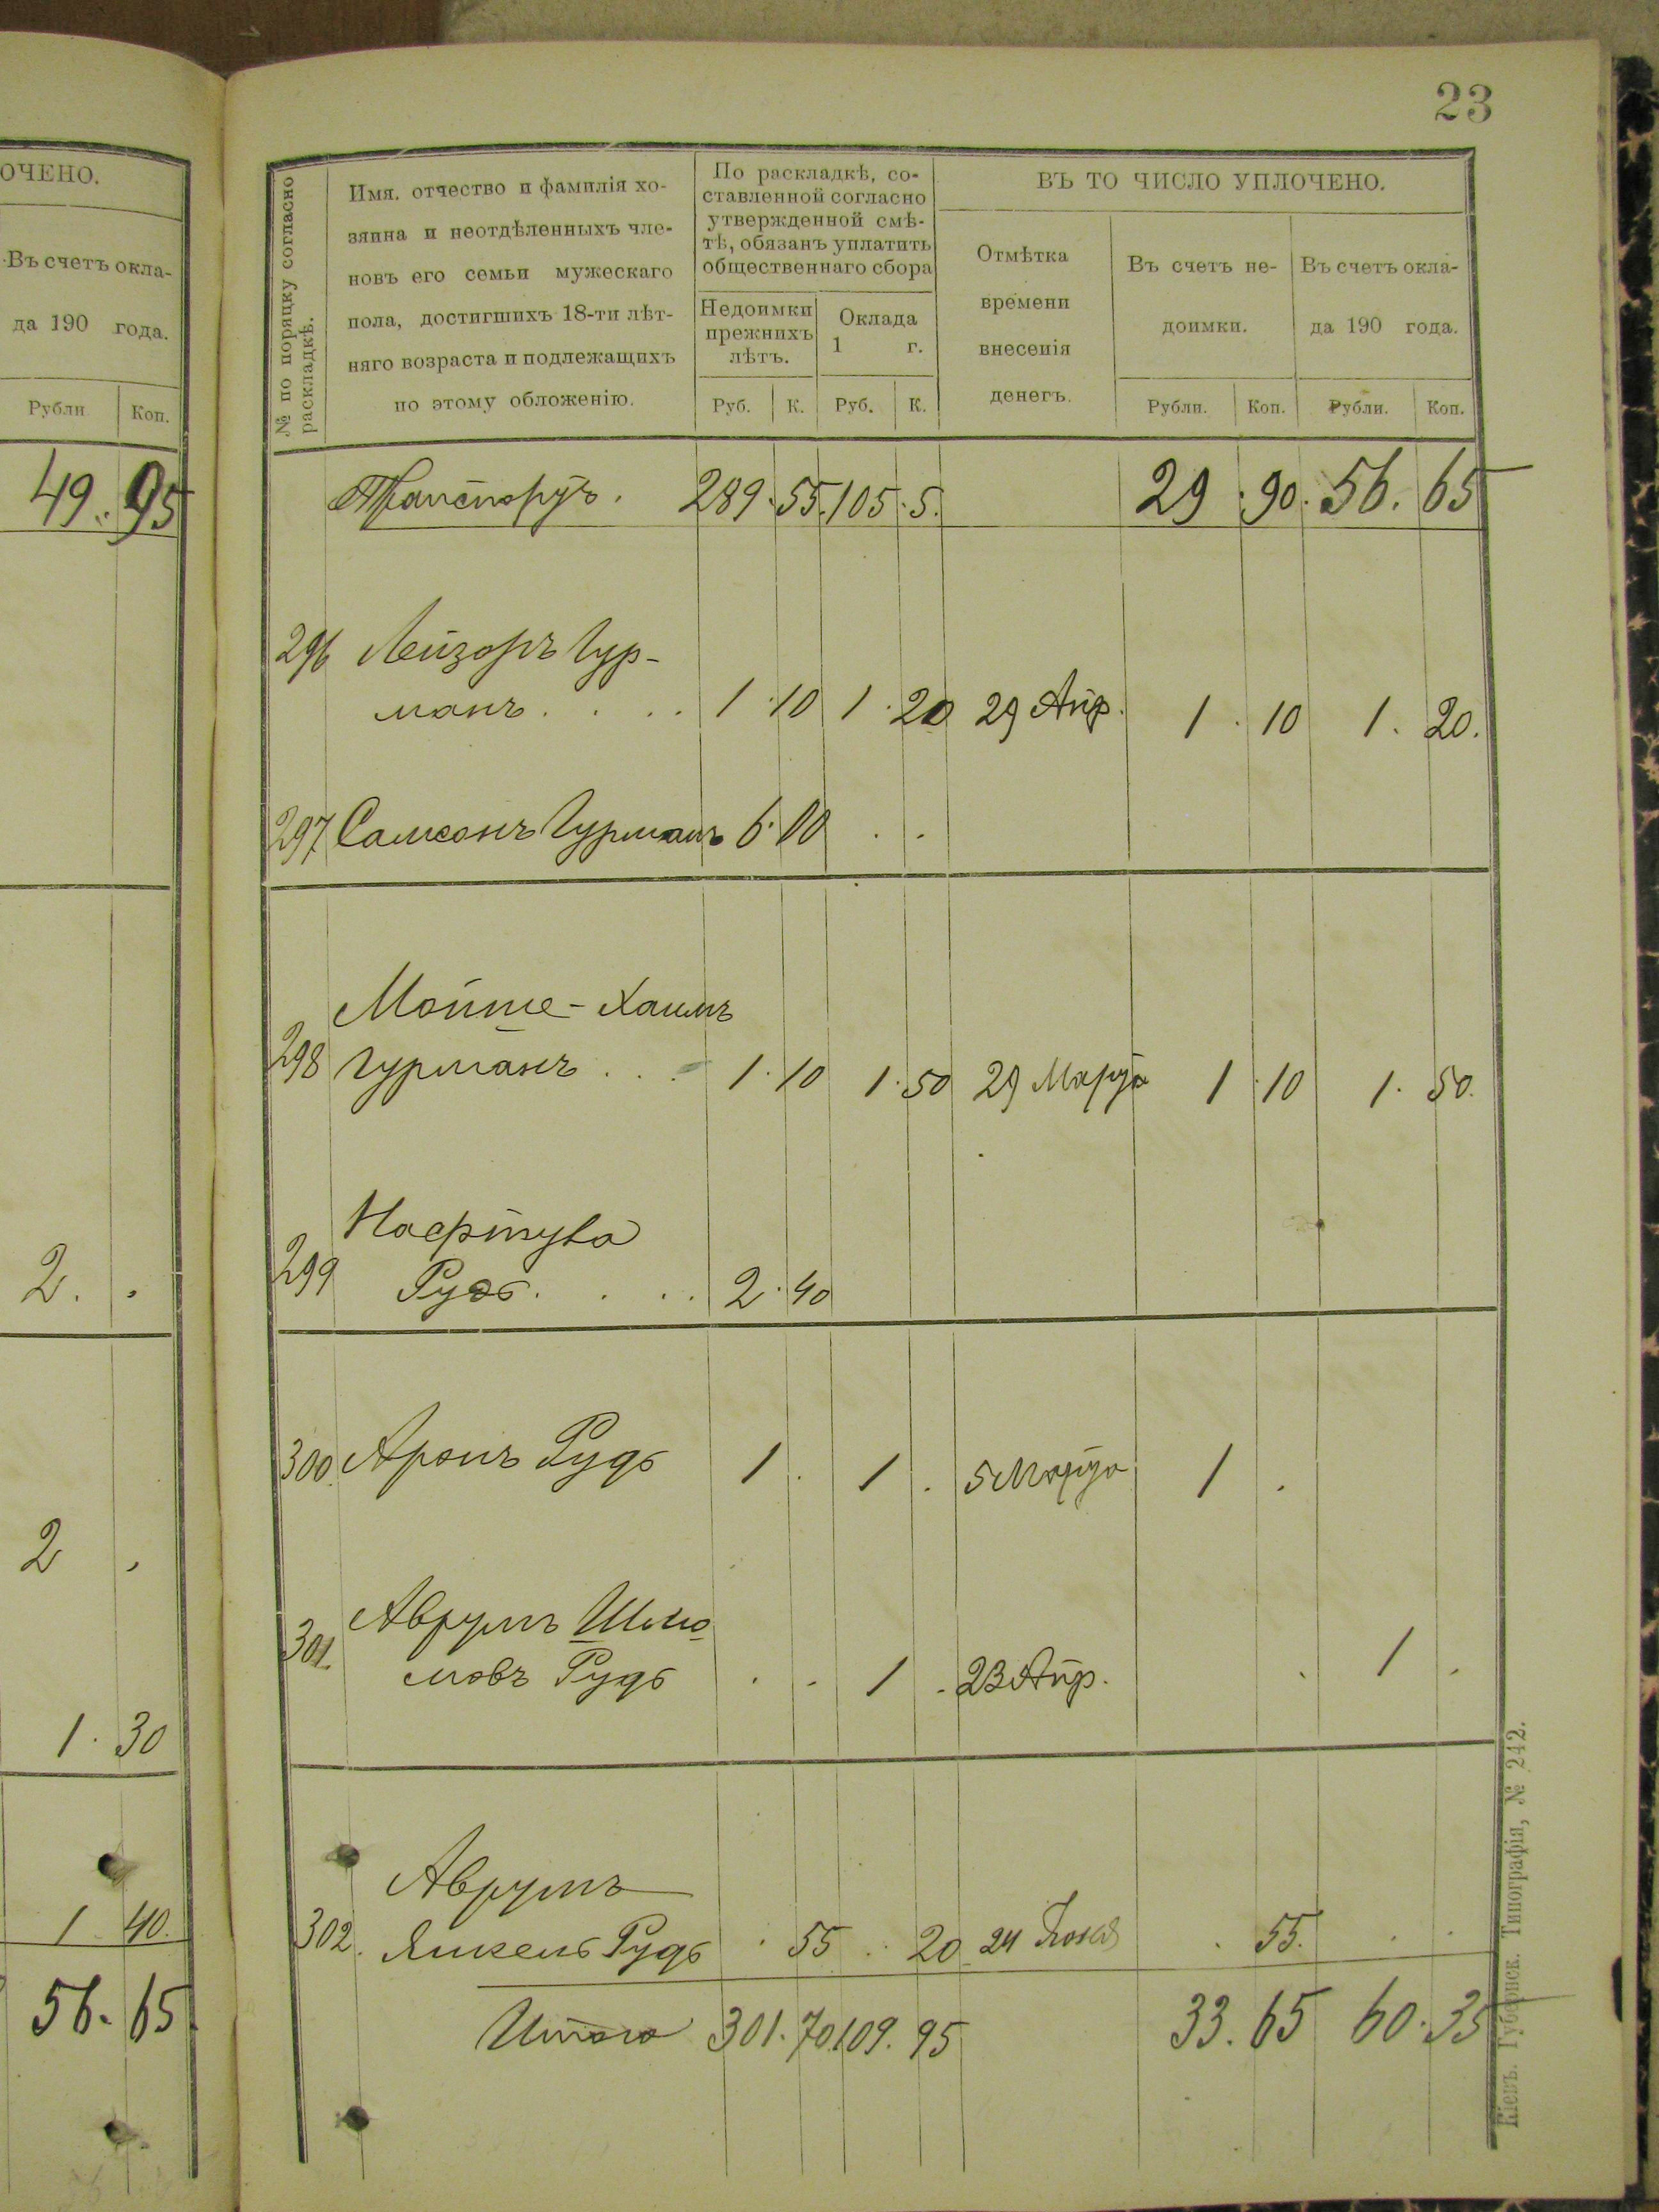 ОЧЕНО.
Въ счетъ окла-
да 190 года.
Рубли Коп.
49. 95
2. .
2 .
1. 30
1 40.
56. 65.
23
№ по порядку согласно
раскладкѣ.
Имя, отчество и фамилія хо-
зяина и неотдѣленныхъ чле-
новъ его семьи мужескаго
пола, достигшихъ 18-ти лѣт-
няго возраста и подлежащихъ
по этому обложенію.
По раскладкѣ, со-
ставленной согласно
утвержденной смѣ-
тѣ, обязанъ уплатить
общественнаго сбора
Недоимки
прежнихъ
лѣтъ.
Оклада
1 г.
Руб. К. Руб. К.
ВЪ ТО ЧИСЛО УПЛОЧЕНО.
Отмѣтка
времени
внесенія
денегъ.
Въ счетъ не-
доимки.
Въ счетъ окла-
да 190 года.
Рубли. Коп. Рубли. Коп.
Транспортъ. 289. 55. 105. 5. 29. 90. 56. 65
296 Лейзоръ Гур-
манъ . . . . 1. 10 1. 20 29 Апр. 1. 10 1. 20.
297 Самсонъ Гурманъ 6. 00 . .
Мойше-Хаимъ
298 Гурманъ . . . 1. 10 1. 50 29 Марта 1. 10 1. 50.
Нафтула
299 Рудь . . . . 2. 40
300. Аронъ Рудь 1. 1. 5 Марта 1 .
Аврумъ Шлио
301. мовъ Рудь . . 1 . 23 Апр. . 1 .
Аврумъ
302. Янкель Рудь . 55 . 20 24 . 55. . .
Итого 301. 70. 109. 95 33. 65 60. 35
Кіевъ. Губернск. Типографія, № 242.